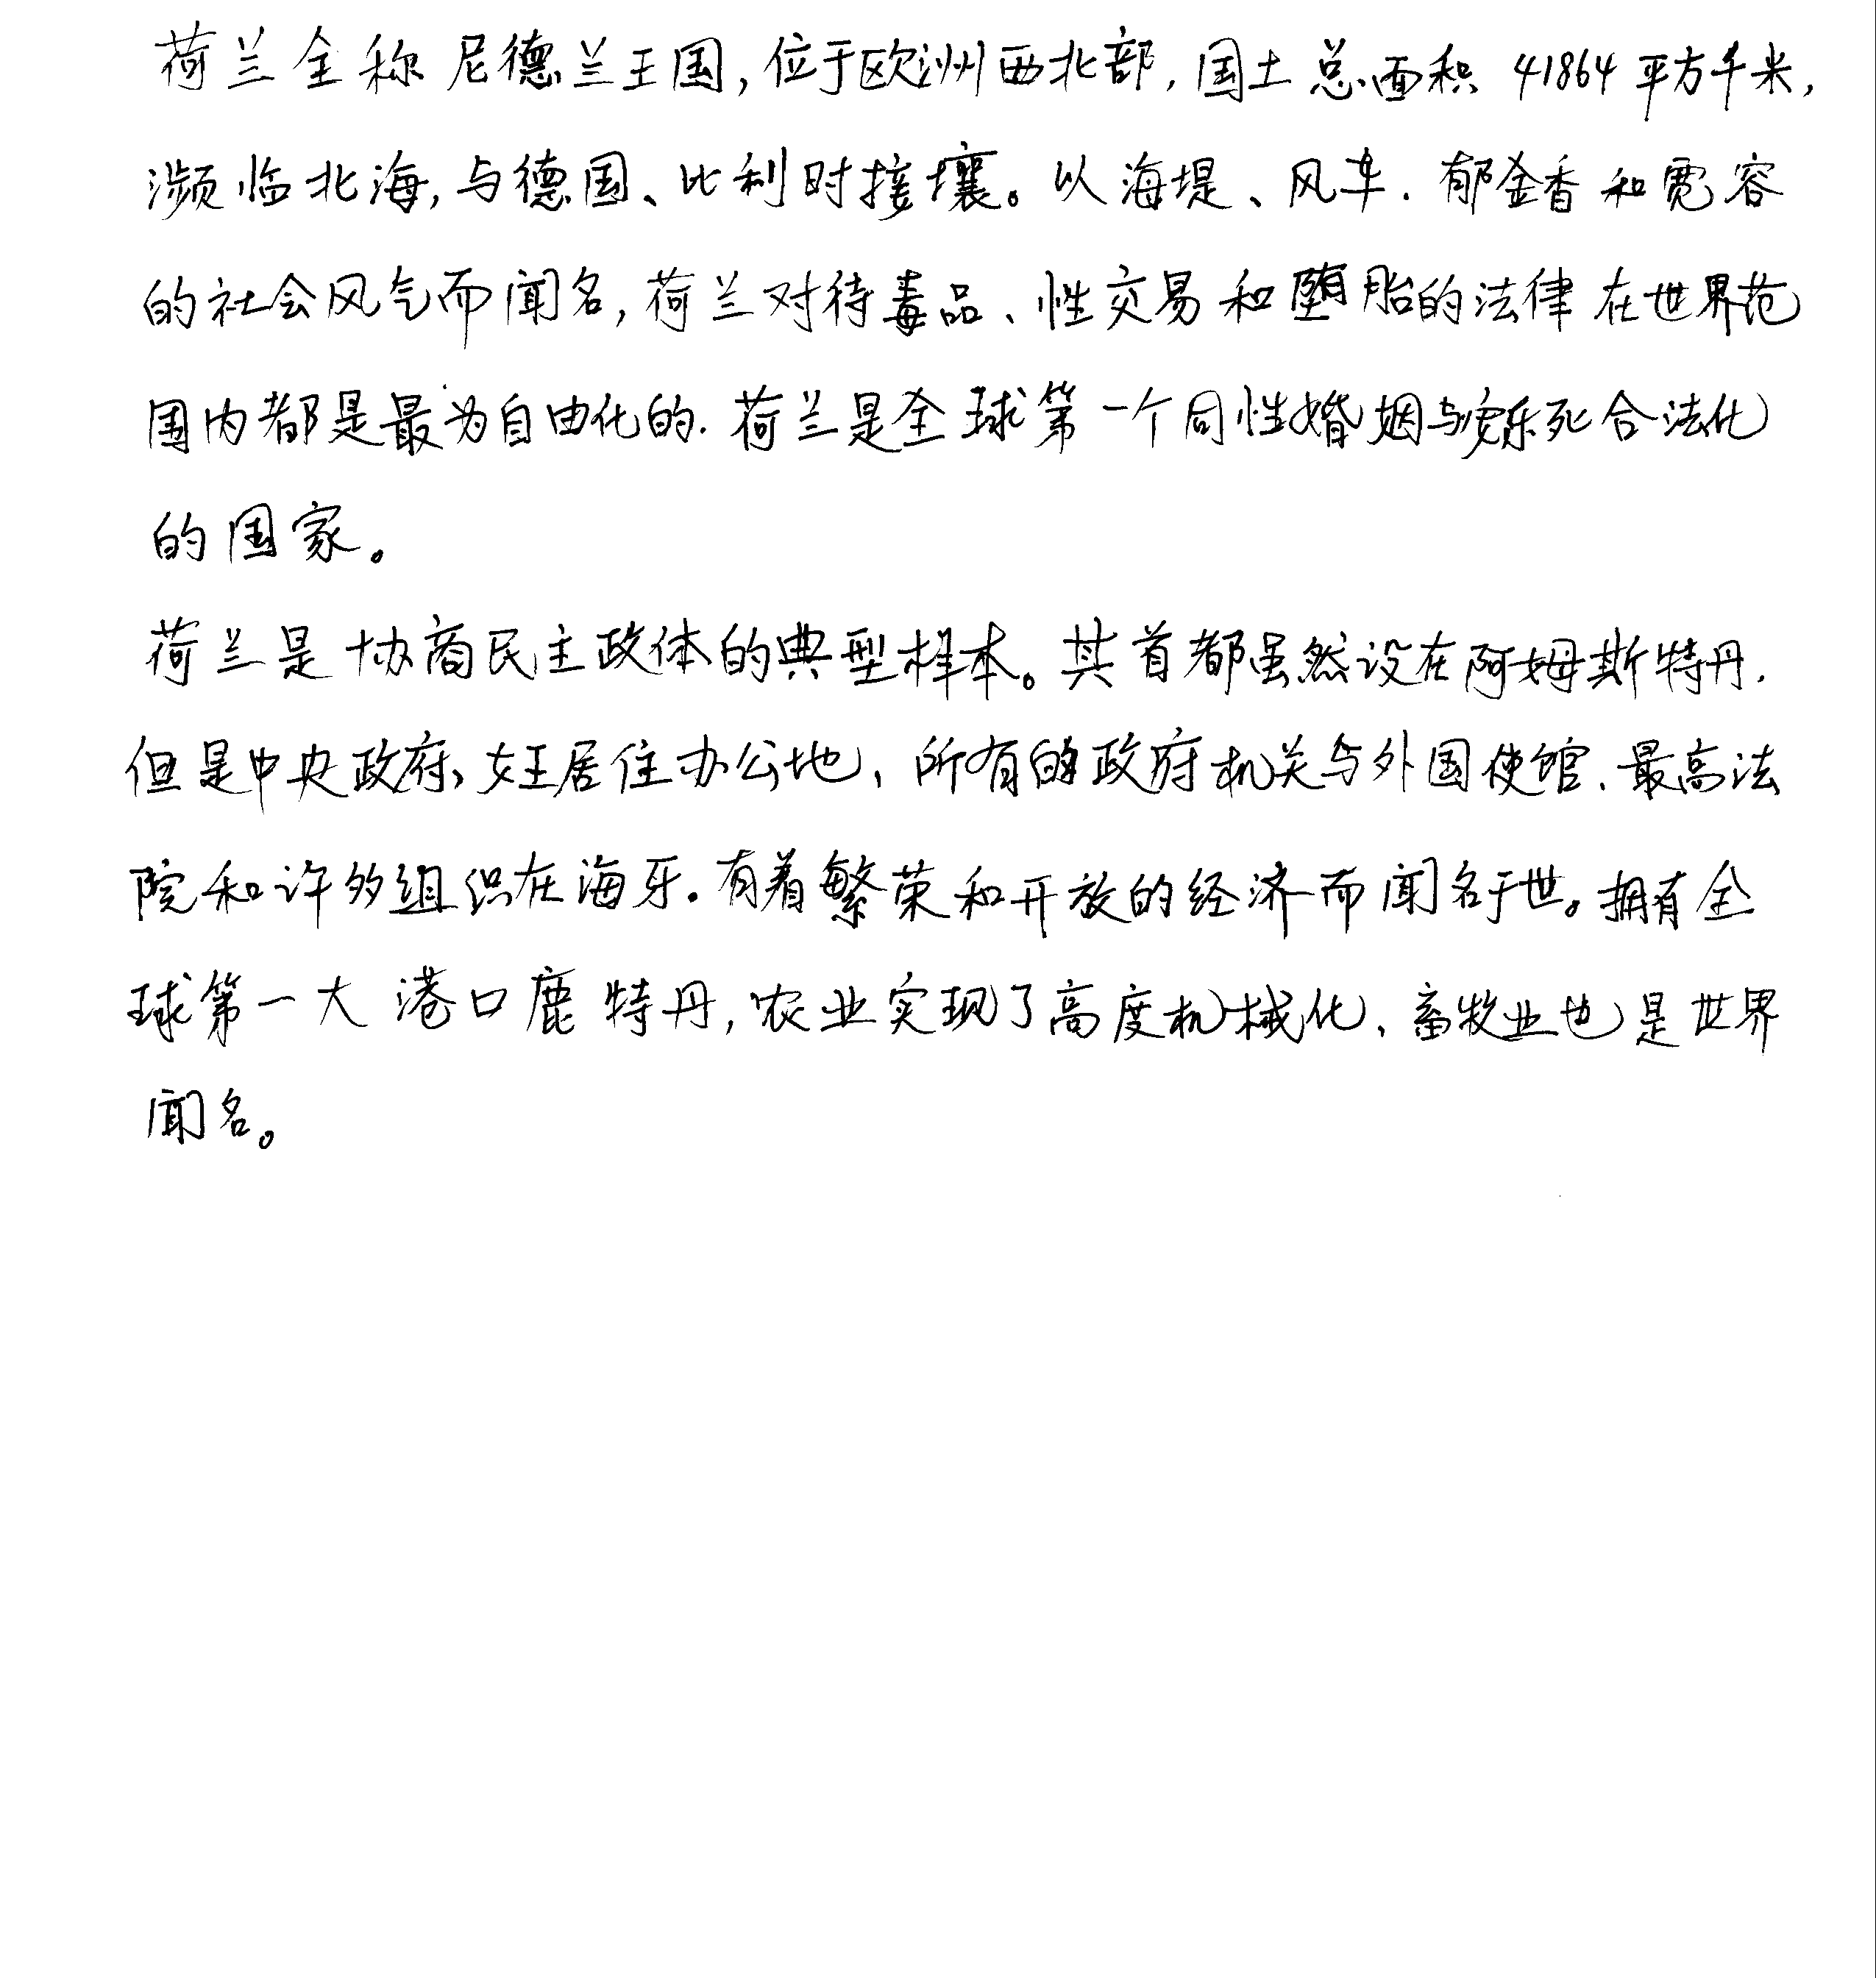 荷兰全称尼德兰王国,位于欧洲西北部,国土总面积41864平方千米,
濒临北海,与德国、比利时接壤。以海堤、风车.郁金香和宽容
的社会风气而闻名,荷兰对待毒品、性交易和堕胎的法律在世界范
围内都是最为自由化的.荷兰是全球第一个同性婚姻与安乐死合法化
的国家。
荷兰是协商民主政体的典型样本。其首都虽然设在阿姆斯特丹.
但是中央政府、女王居住办公地、所有的政府机关与外国使馆、最高法
院和许多组织在海牙.有着繁荣和开放的经济而闻名于世。拥有全
球第一大港口鹿特丹,农业实现了高度机械化、畜牧业也是世界
闻名。